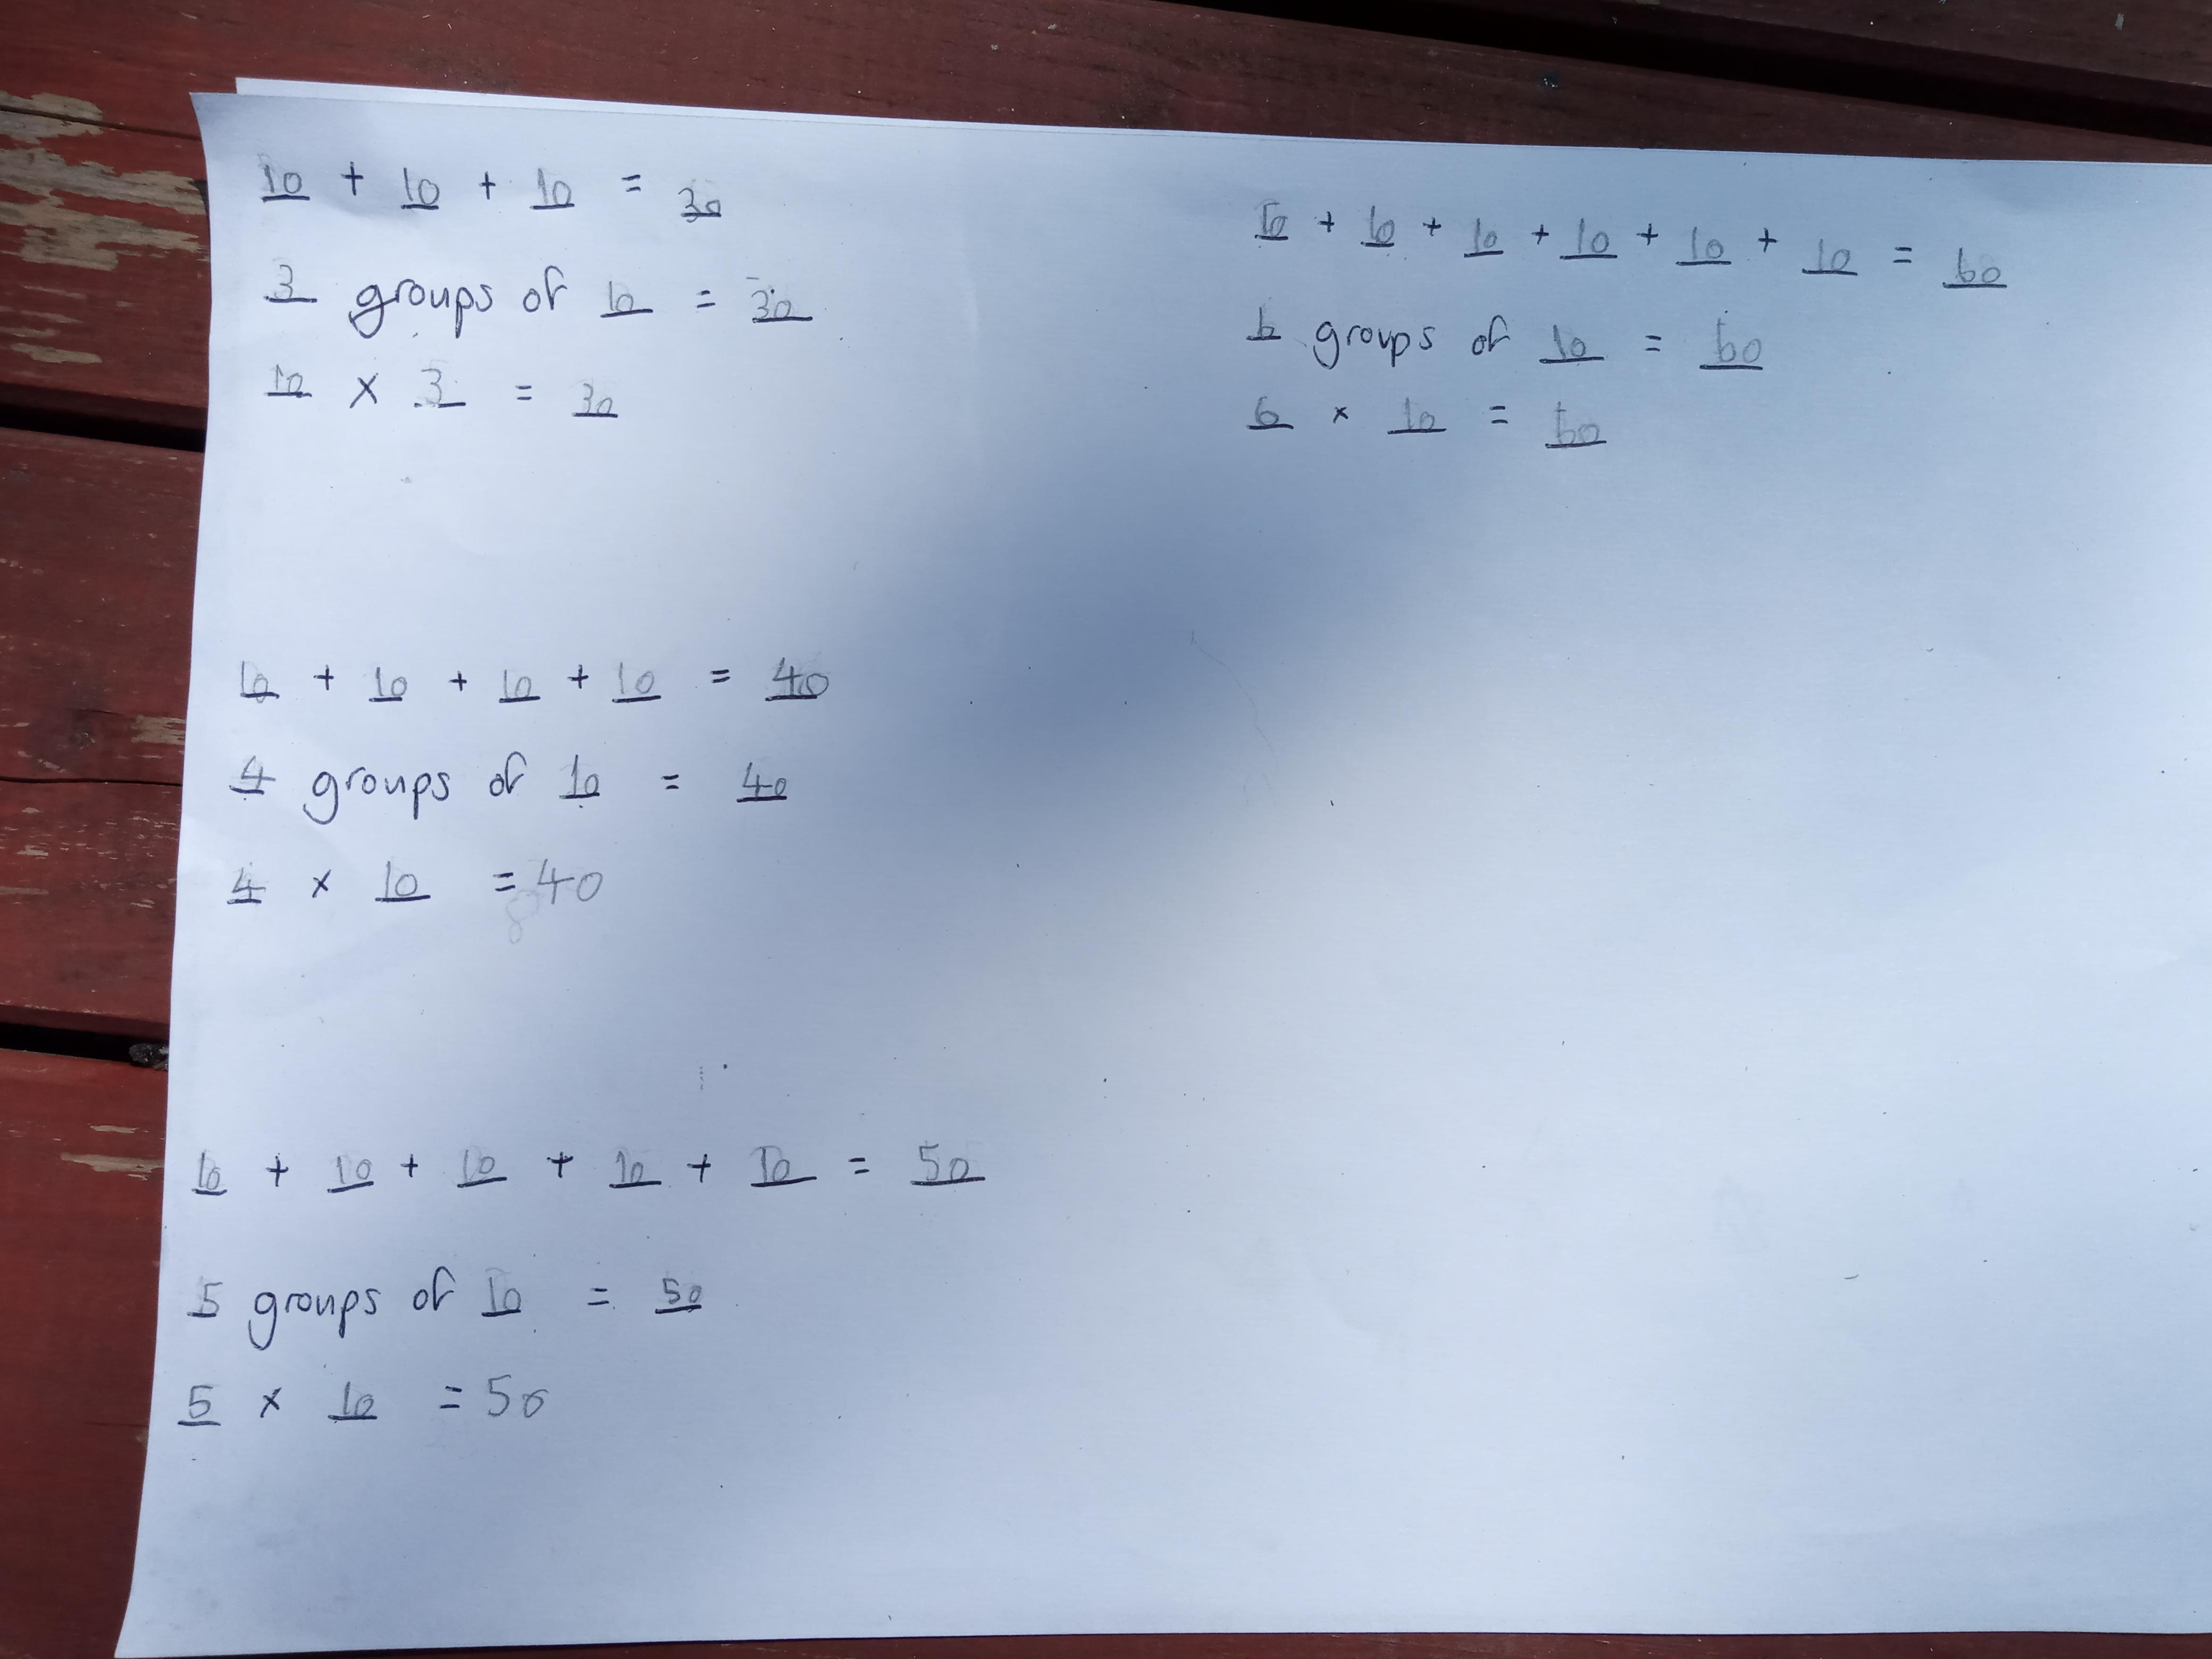 10 + 10 + 10 = 30
3 groups of 10 = 30
10 × 3 = 30
10 + 10 + 10 + 10 = 40
4 groups of 10 = 40
4 × 10 = 40
10 + 10 + 10 + 10 + 10 = 50
5 groups of 10 = 50
5 × 10 = 50
10 + 10 + 10 + 10 + 10 + 10 = 60
6 groups of 10 = 60
6 × 10 = 60